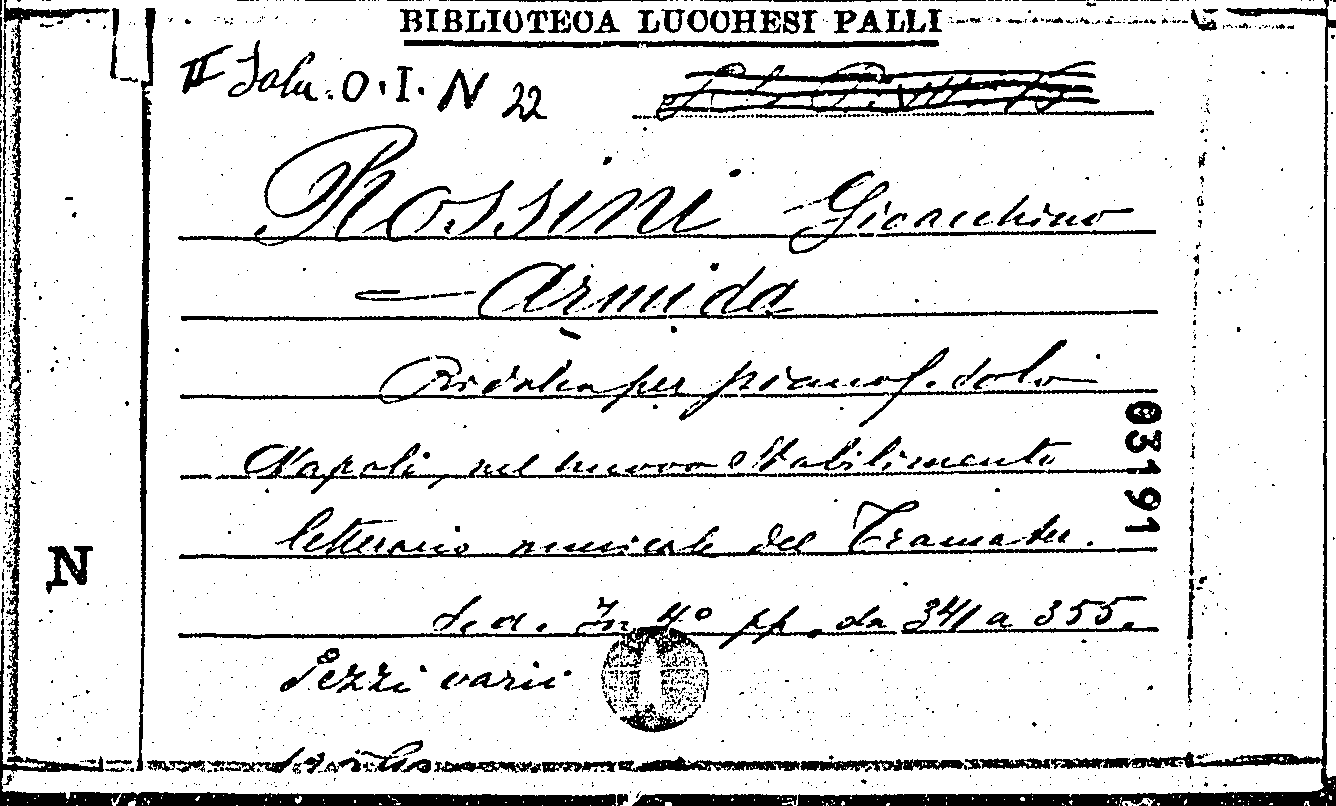 BIBLIOTECA LUCCHESI PALLI
II Sala. O. I. N 22
Rossini Gioacchino
— Armida
Ridotta per pianof. solo
Napoli, nel nuovo Stabilimento
letterario musicale del Tramater.
S. d. In 4° pp. da 341 a 355.
Pezzi varii
03191
N